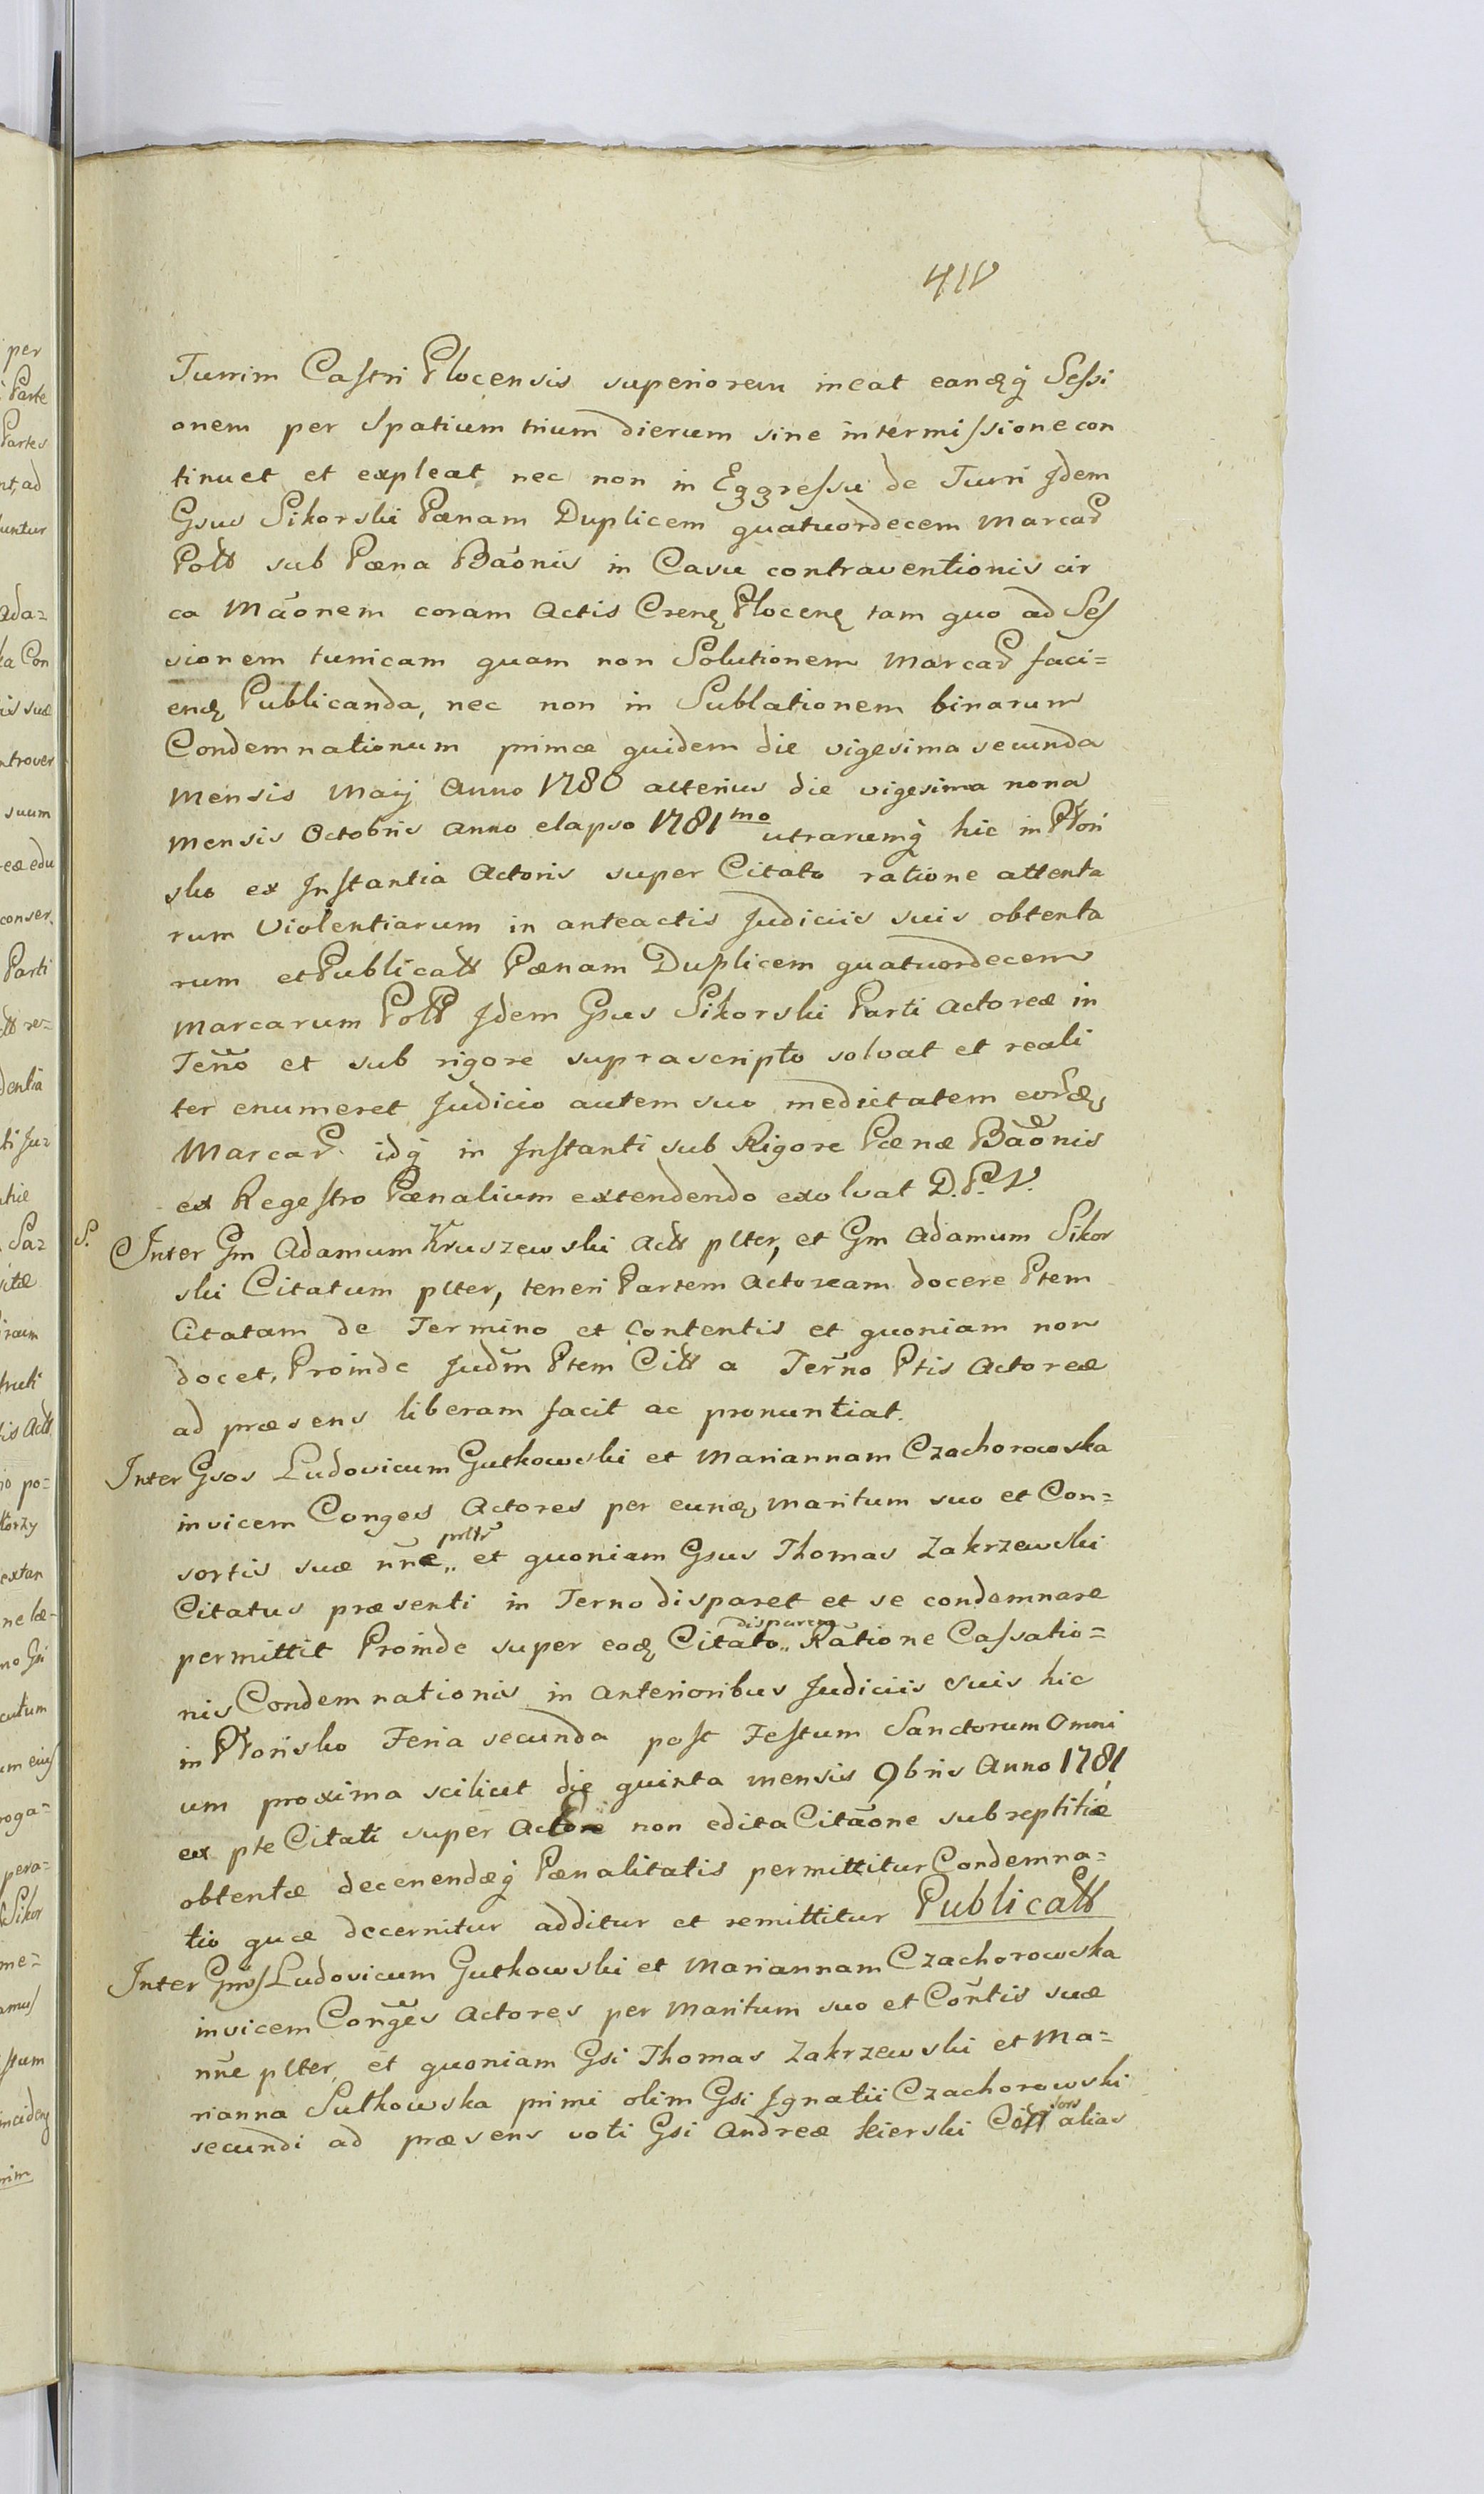 417
Turrim Castri Plocensis superiorem ineat eandqȝ Sessi
onem per Spatium trium dierum sine intermissione con
tinuet et expleat nec non in Eggressu de Turri Idem
Gsus Sikorski Pænam Duplicem quatuordecem Marcar
Poll sub Pæna Bãonis in Casu contraventionis cir
ca Mãonem coram Actis Crens Plocens tam quo ad Ses
sionem turricam quam non Solutionem Marcar faci=
end Publicanda, nec non in Sublationem binarum
Condemnationum primæ quidem die vigesima secunda
Mensis Maij Anno 1780 alterius die vigesima nona
Mensis Octobris Anno elapso 1781mo utrarumqȝ hic in Płoń
sko ex Instantia Actoris super Citato ratione attenta
rum Violentiarum in anteactis Judiciis suis obtenta
rum et Publicatt Pænam Duplicem quatuordecem
Marcarum Poll Idem Gsus Sikorski Parti Actoreæ in
Teñõ et sub rigore suprascripto solvat et reali
ter enumeret Judicio autem suo medietatem eord
Marcar idqȝ in Instanti sub Rigore Pænæ Bãonis
ex Regestro Pænalium extendendo exolvat D.P.V.
S.
Inter Gm Adamum Kruszewski Actt plter, et Gm Adamum Sikor
ski Citatum plter, teneri Partem Actoream docere Ptem
Citatam de Termino et Contentis et quoniam non
docet, Proinde Judm Ptem Citt a Terno Ptis Actoreæ
ad præsens liberam facit ac pronuntiat.
Inter Gsos Ludovicum Gutkowski et Mariannam Czachorowska
invicem Conges Actores per eund Maritum suo et Con=
sortis suæ nñe pltr et quoniam Gsus Thomas Zakrzewski
Citatus præsenti in Terno disparet et se condemnare
permittit Proinde super eod Citato disparem Ratione Cassatio=
nis Condemnationis in anterioribus Judiciis suis hic
in Płońsko Feria secunda post Festum Sanctorum Omni
um proxima scilicet die quinta mensis 9bris Anno 1781
ex pte Citati super Actore non edita Citãone subreptitie
obtentæ decenendæqȝ Pænalitatis permittitur Condemna=
tio quæ decernitur additur et remittitur Publicatt
Inter Gnos Ludovicum Gutkowski et Mariannam Czachorowska
invicem Conges Actores per Maritum suo et Contis suæ
nñe plter, et quoniam Gsi Thomas Zakrzewski et Ma=
rianna Sutkowska primi olim Gsi Ignatii Czachorowski
secundi ad præsens voti Gsi Andreæ Kierski alias